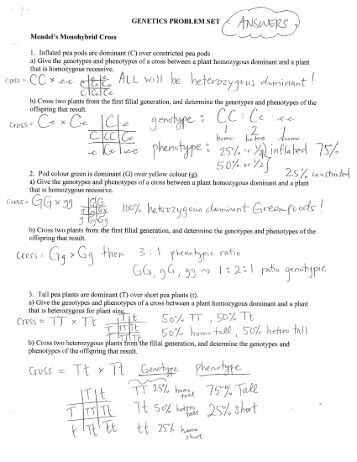 GENETICS PROBLEM SET
ANSWERS
Mendel's Monohybrid Cross
1. Inflated pea pods are dominant (C) over constricted pea pods
a) Give the genotypes and phenotypes of a cross between a plant homozygous dominant and a plant
that is homozygous recessive.
cross = CC × cc
ALL will be heterozygous dominant!
b) Cross two plants from the first filial generation, and determine the genotypes and phenotypes of the
offspring that result.
cross = Cc × Cc
C c
C CC Cc
c Cc cc
genotype: CC : Cc : cc
1 2 1
homo hetero homo
phenotype: 25% or 1/4 inflated 75%
50% or 1/2
25% constricted
2. Pod colour green is dominant (G) over yellow colour (g).
a) Give the genotypes and phenotypes of a cross between a plant homozygous dominant and a plant
that is homozygous recessive.
cross = GG × gg
100% heterozygous dominant Green pods!
b) Cross two plants from the first filial generation, and determine the genotypes and phenotypes of the
offspring that result.
cross = Gg × Gg then 3 : 1 phenotypic ratio
GG, gG, gg → 1 : 2 : 1 ratio genotypic
3. Tall pea plants are dominant (T) over short pea plants (t).
a) Give the genotypes and phenotypes of a cross between a plant homozygous dominant and a plant
that is heterozygous for plant size.
cross = TT × Tt
50% TT, 50% Tt
50% homo tall, 50% hetero tall
b) Cross two heterozygous plants from the filial generation, and determine the genotypes and
phenotypes of the offspring that result.
cross = Tt × Tt Genotype Phenotype
T t
T TT Tt
t Tt tt
TT 25% homo tall 75% Tall
Tt 50% hetero tall 25% short
tt 25% homo short